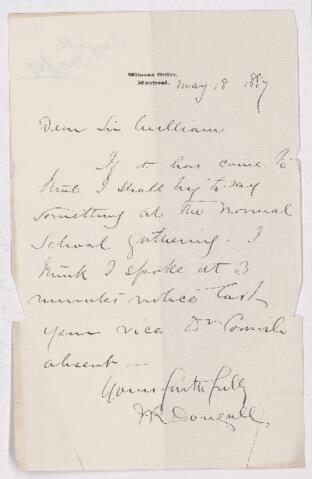 Witness Office,
Montreal.
May 18 1887
Dear Sir William
If it has come to
that I shall try to say
something at the Normal
School gathering. I
think I spoke at 3
minutes notice last
year vice Dr Cornish
absent --
Yours faithfully
JR Dougall